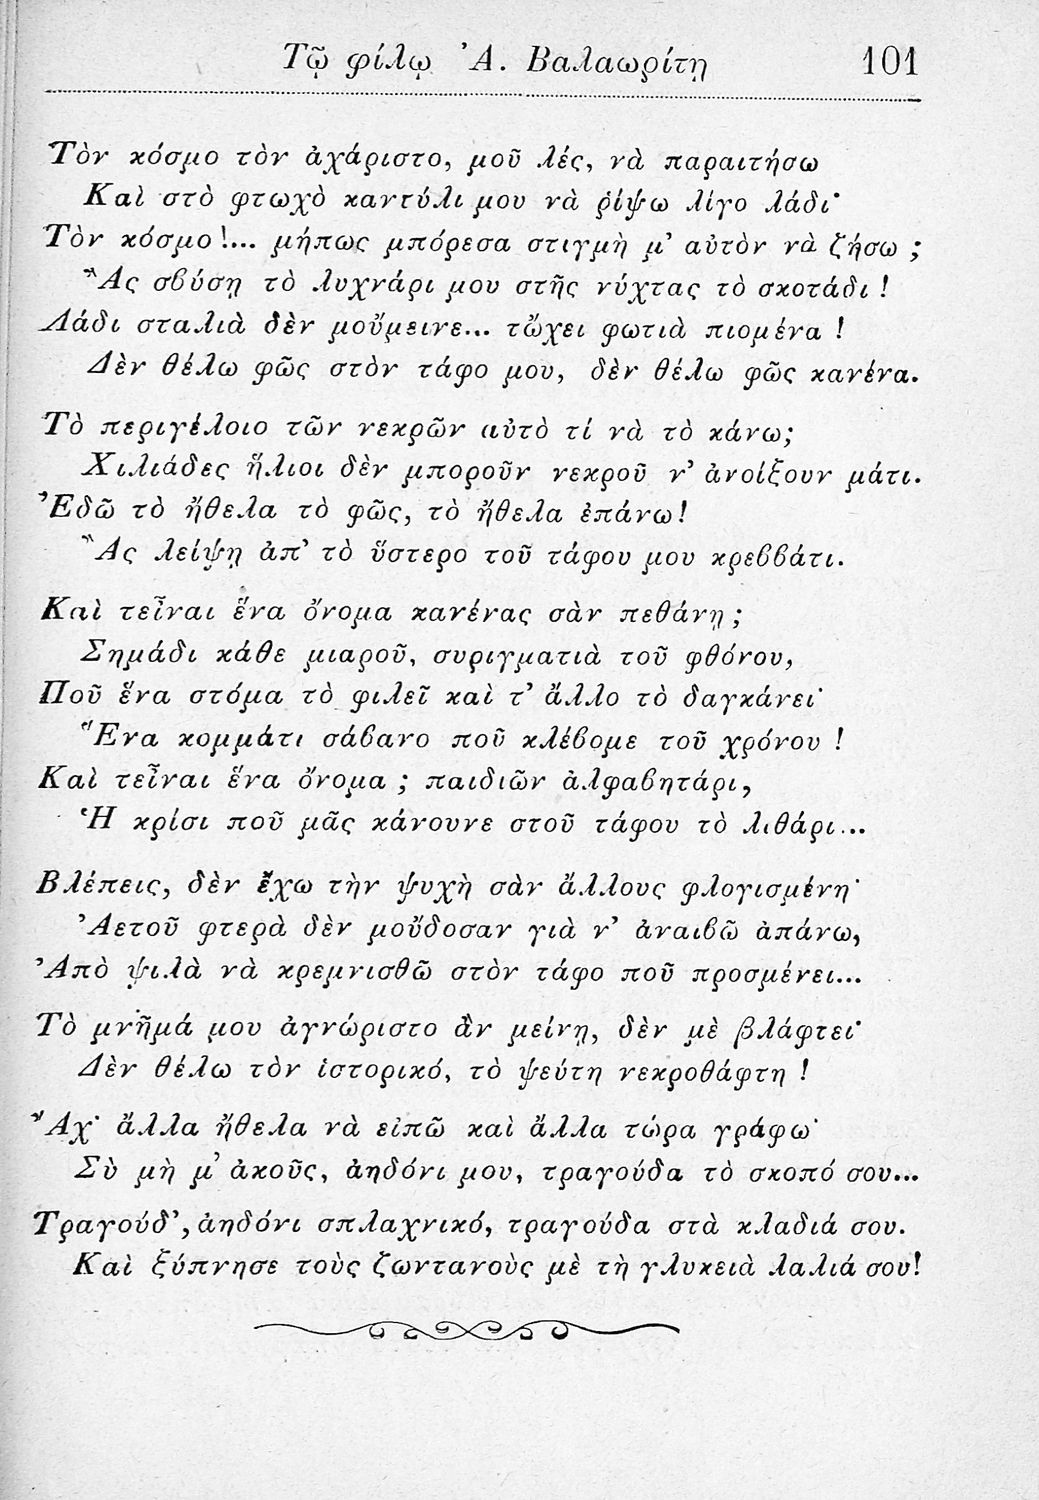 Τῷ φίλῳ Ἀ. Βαλαωρίτῃ 101
Τὸν κόσμο τὸν ἀχάριστο, μοῦ λές, νὰ παραιτήσω
Καὶ στὸ φτωχὸ καντύλι μου νὰ ῥίψω λίγο λάδι·
Τὸν κόσμο!... μήπως μπόρεσα στιγμὴ μ’ αὐτὸν νὰ ζήσω ;
Ἂς σβύσῃ τὸ λυχνάρι μου στῆς νύχτας τὸ σκοτάδι !
Λάδι σταλιὰ δὲν μοὔμεινε... τὤχει φωτιὰ πιομένα !
Δὲν θέλω φῶς στὸν τάφο μου, δὲν θέλω φῶς κανένα.
Τὸ περιγέλοιο τῶν νεκρῶν αὐτὸ τί νὰ τὸ κάνω;
Χιλιάδες ἥλιοι δὲν μποροῦν νεκροῦ ν’ ἀνοίξουν μάτι.
Ἐδῶ τὸ ἤθελα τὸ φῶς, τὸ ἤθελα ἐπάνω!
Ἂς λείψῃ ἀπ’ τὸ ὕστερο τοῦ τάφου μου κρεββάτι.
Καὶ τεἶναι ἕνα ὄνομα κανένας σὰν πεθάνῃ ;
Σημάδι κάθε μιαροῦ, συριγματιὰ τοῦ φθόνου,
Ποῦ ἕνα στόμα τὸ φιλεῖ καὶ τ’ ἄλλο τὸ δαγκάνει·
Ἕνα κομμάτι σάβανο ποῦ κλέβομε τοῦ χρόνου !
Καὶ τεἶναι ἕνα ὄνομα ; παιδιῶν ἀλφαβητάρι,
Ἡ κρίσι ποῦ μᾶς κάνουνε στοῦ τάφου τὸ λιθάρι...
Βλέπεις, δὲν ἔχω τὴν ψυχὴ σὰν ἄλλους φλογισμένη·
Ἀετοῦ φτερὰ δὲν μοὔδοσαν γιὰ ν’ ἀναιβῶ ἀπάνω,
Ἀπὸ ψιλὰ νὰ κρεμνισθῶ στὸν τάφο ποῦ προσμένει...
Τὸ μνῆμά μου ἀγνώριστο ἂν μείνῃ, δὲν μὲ βλάφτει·
Δὲν θέλω τὸν ἱστορικό, τὸ ψεύτη νεκροθάφτη !
Ἄχ· ἄλλα ἤθελα νὰ εἰπῶ καὶ ἄλλα τώρα γράφω·
Σὺ μὴ μ’ ἀκοῦς, ἀηδόνι μου, τραγούδα τὸ σκοπό σου...
Τραγούδ’, ἀηδόνι σπλαχνικό, τραγούδα στὰ κλαδιά σου.
Καὶ ξύπνησε τοὺς ζωντανοὺς μὲ τὴ γλυκειὰ λαλιά σου!